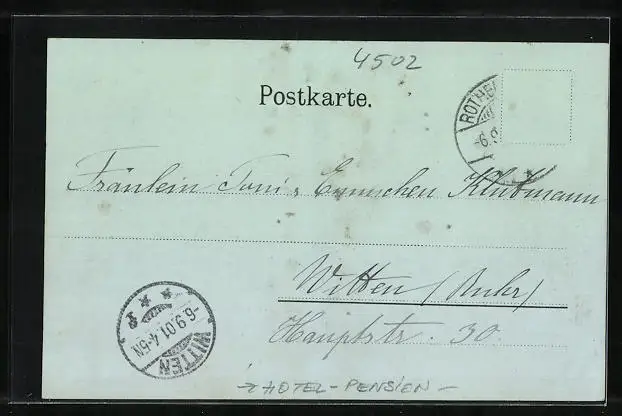 4502
Postkarte.
ROTHE
-6.9
Fräulein Toni u. Emmchen Klubmann
Witten (Ruhr)
Hauptstr. 30.
-6.9.01.4-5N
WITTEN
HOTEL-PENSION